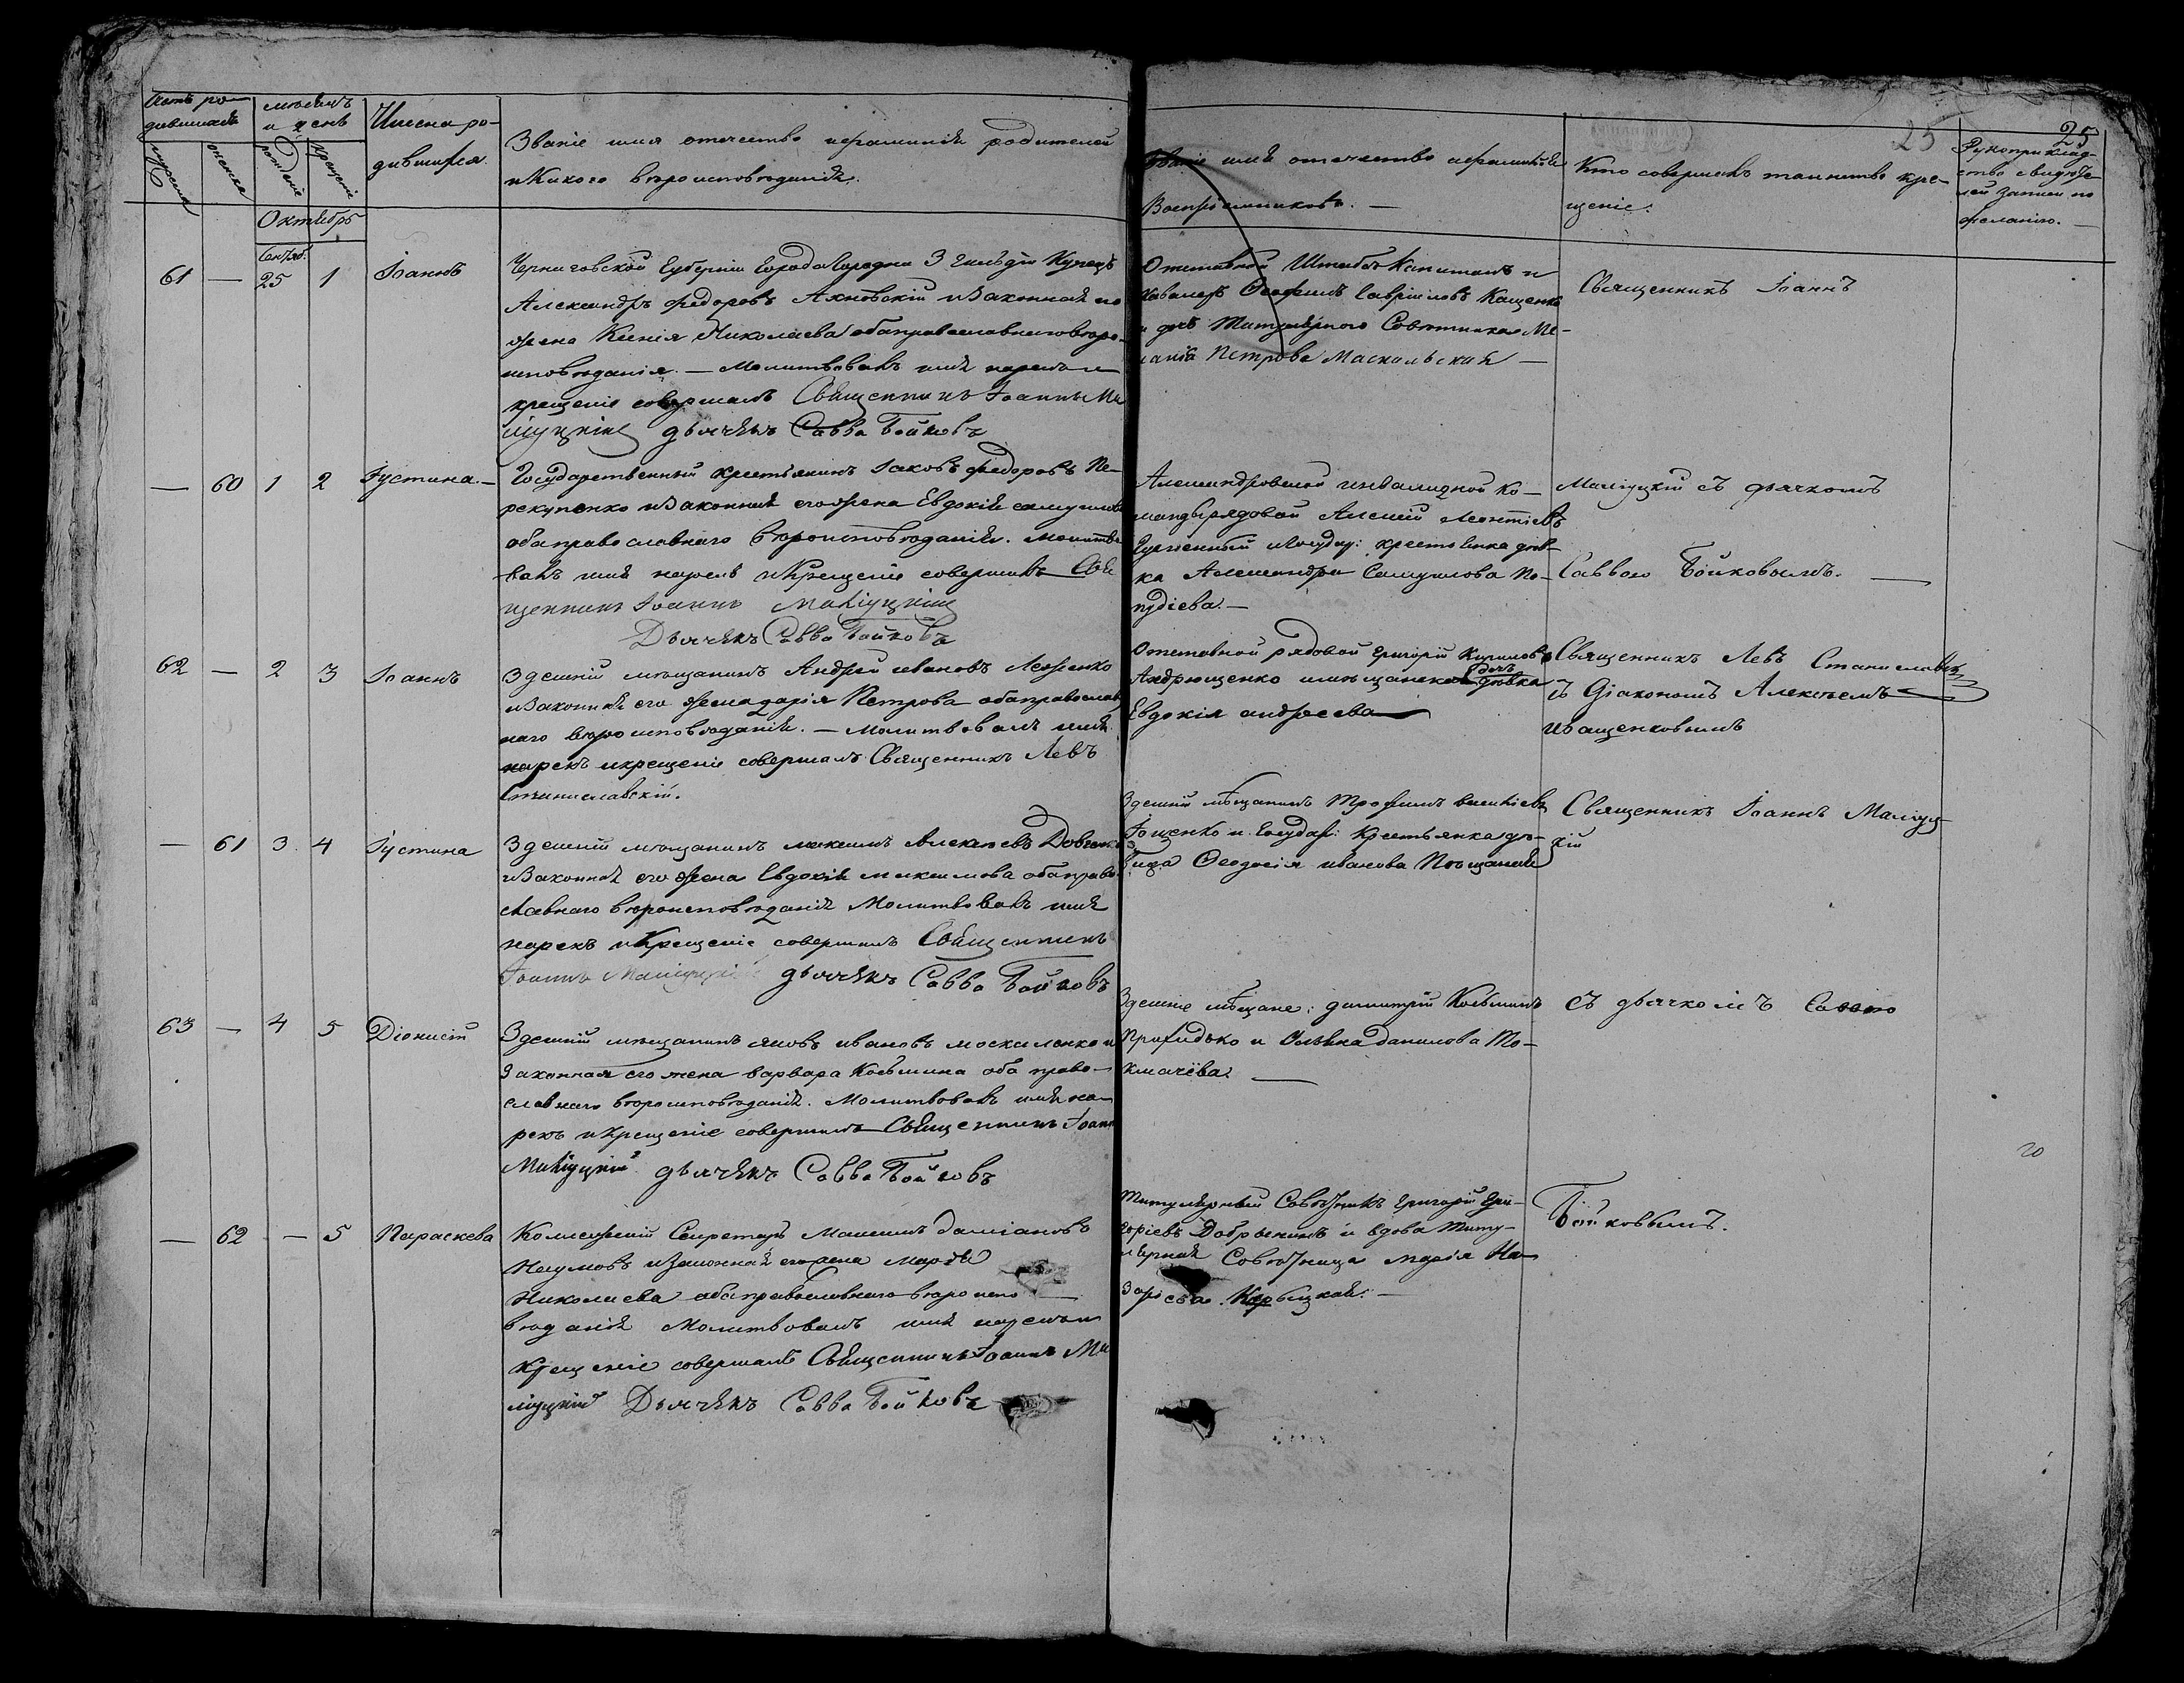 25
25
Счетъ ро-
дившихся
мужеска
женска
мѣсяцъ
и день
рожденіе
крещеніе
Имена ро-
дившихся.
Званіе имя отечество ифамилія родителей
иКакого вѣроисповѣданія.
Званіе имя отечество ифамилія
Воспріемниковъ. —
Кто совершалъ таинство кре-
щенія.
Рукоприклад-
ство свидѣте-
лей записи по
желанію. —
Октябрь
Сентяб.
61 — 25 1 Іоаннъ
Черниговской Губерніи Города Городни 3 гильдіи Купецъ
Александръ Федоровъ Ахновскій иЗаконная его
жена Ксенія Николаева обаправославнаговѣро-
исповѣданія. — Молитвовалъ имя нарекъ и
крещеніе совершалъ Священникъ Іоаннъ Ма
ліуцкій дьячекъ Савва Бойковъ
Отставной Штабсъ Капитанъ и
Кавалеръ Ѳеофилъ Гавріиловъ Кащенко
и дочь Титулярнаго Совѣтника Ме-
ланія Петрова Маскальская —
Священникъ Іоаннъ
— 60 1 2 Іустина. —
Государственный крестьянинъ Іаковъ Федоровъ Пе-
рекупенко иЗаконная егожена Евдокія самуилова
обаправославнаго вѣроисповѣданія. Молитво
валъ имя нарекъ иКрещеніе совершалъ Свя
щенникъ Іоаннъ Маліуцкій
Дьячекъ Савва Бойковъ
Александровской инвалидной Ко-
манды рядовой Алексій Леонтіевъ
Государ: крестьянка дѣв-
ка Александра Самуилова По-
пудіева. —
Маліуцкій съ дьячкомъ
Саввою Бойковымъ. —
62 — 2 3 Іоаннъ
Здешній мѣщанинъ Андрей ивановъ Леженко
иЗаконная его жена дарія Петрова обаправослав
наго вѣроисповѣданія. — Молитвовалъ имя
нарекъ икрещеніе совершалъ Священникъ Левъ
Станиславскій.
Отставной рядовой Григорій Кириловъ
Андрющенко имѣщанская дочь дѣвка
Евдокія андреева
Священникъ Левъ Станиславскій
съ Діакономъ Алексѣемъ
Иващенковымъ
— 61 3 4 Іустина
Здешній мѣщанинъ максимъ Алексѣевъ
иЗаконная его жена Евдокія максимова обаправо
славнаго вѣроисповѣданія Молитвовалъ имя
нарекъ иКрещеніе совершалъ Священникъ
Іоаннъ Маліуцкій дьячекъ Савва Бойковъ
Здешній мѣщанинъ Трофимъ васильевъ
и Государ: Крестьянка дѣ-
вица Ѳеодосія иванова
Священникъ Іоаннъ Маліуц-
кій
63 — 4 5 Діонисій
Здешній мѣщанинъ яковъ ивановъ москаленко и
Законная его жена варвара Косьмина оба право-
славнаго вѣроисповѣданія. Молитвовалъ имя на-
рекъ икрещеніе совершалъ Священникъ Іоаннъ
Маліуцкій дьячекъ Савва Бойковъ
Здешніе мѣщане: димитрій Косьминъ
Приходько и Ульяна данилова То-
кмачёва. —
съ дьячкомъ Саввою
— 62 — 5 Параскева
Коллежскій Секретарь Максимъ даміановъ
Наумовъ иЗаконная егожена марѳа
Николаева обаправославнаго вѣроиспо-
вѣданія Молитвовалъ имя нарекъ и
Крещеніе совершалъ Священникъ Іоаннъ Ма
ліуцкій Дьячекъ Савва Бойковъ
Титулярный Совѣтникъ Григорій Гри-
горіевъ Добрынинъ и вдова Титу-
лярная Совѣтница марія На-
заріева. —
Бойковымъ.
20